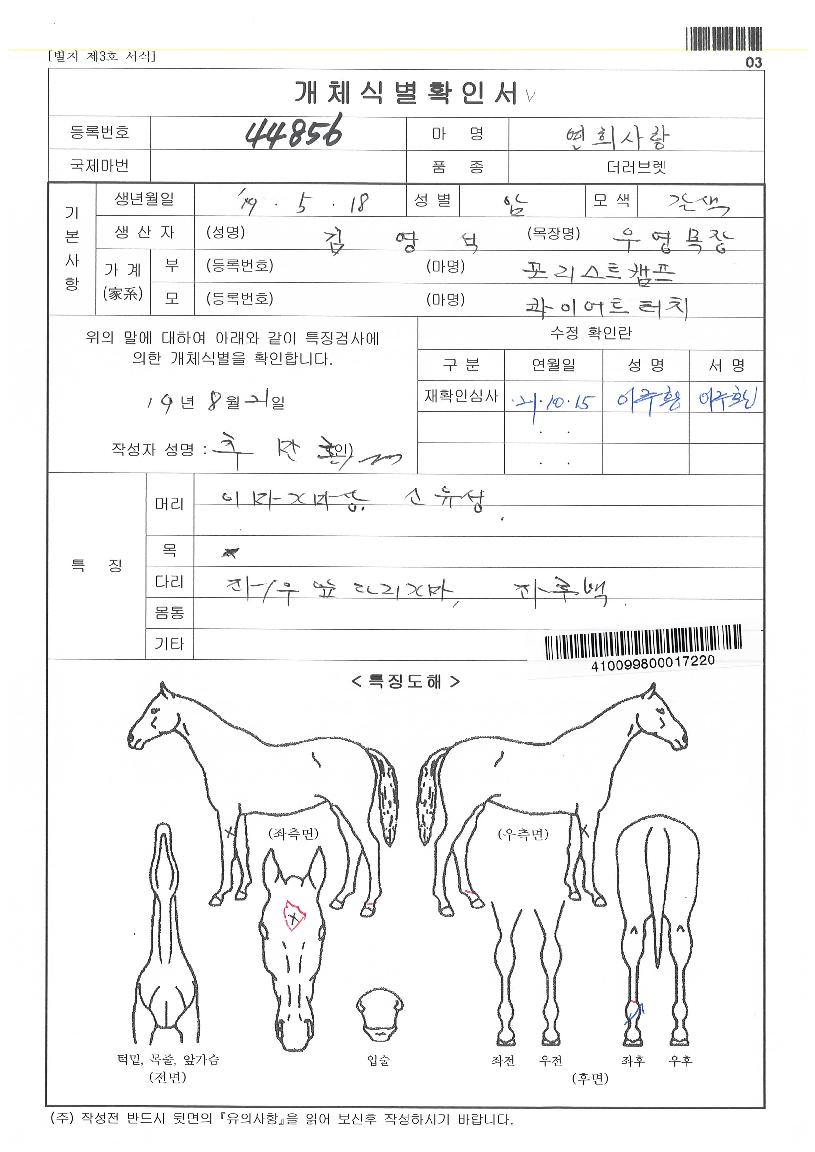 [별지 제3호 서식]
03
개체식별확인서 V
등록번호 44856 마 명 연희사랑
국제마번 품 종 더러브렛
기본사항
생년월일 '19 . 5 . 18 성 별 암 모 색 갈색
생 산 자 (성명) 김 영 석 (목장명) 우영목장
가 계 (家系) 부 (등록번호) (마명) 포리스트캠프
모 (등록번호) (마명) 콰이어트터치
위의 말에 대하여 아래와 같이 특징검사에
의한 개체식별을 확인합니다.
19 년 8 월 21 일
작성자 성명 : (인)
수정 확인란
구 분 연월일 성 명 서 명
재확인심사 '21.10.15
. .
. .
특 징
머리
목
다리 좌/우 앞다리지마, 좌후백.
몸통
기타
410099800017220
< 특징도해 >
(좌측면) (우측면)
턱밑, 목줄, 앞가슴
(전면)
입술
좌전 우전 좌후 우후
(후면)
(주) 작성전 반드시 뒷면의 『유의사항』을 읽어 보신후 작성하시기 바랍니다.